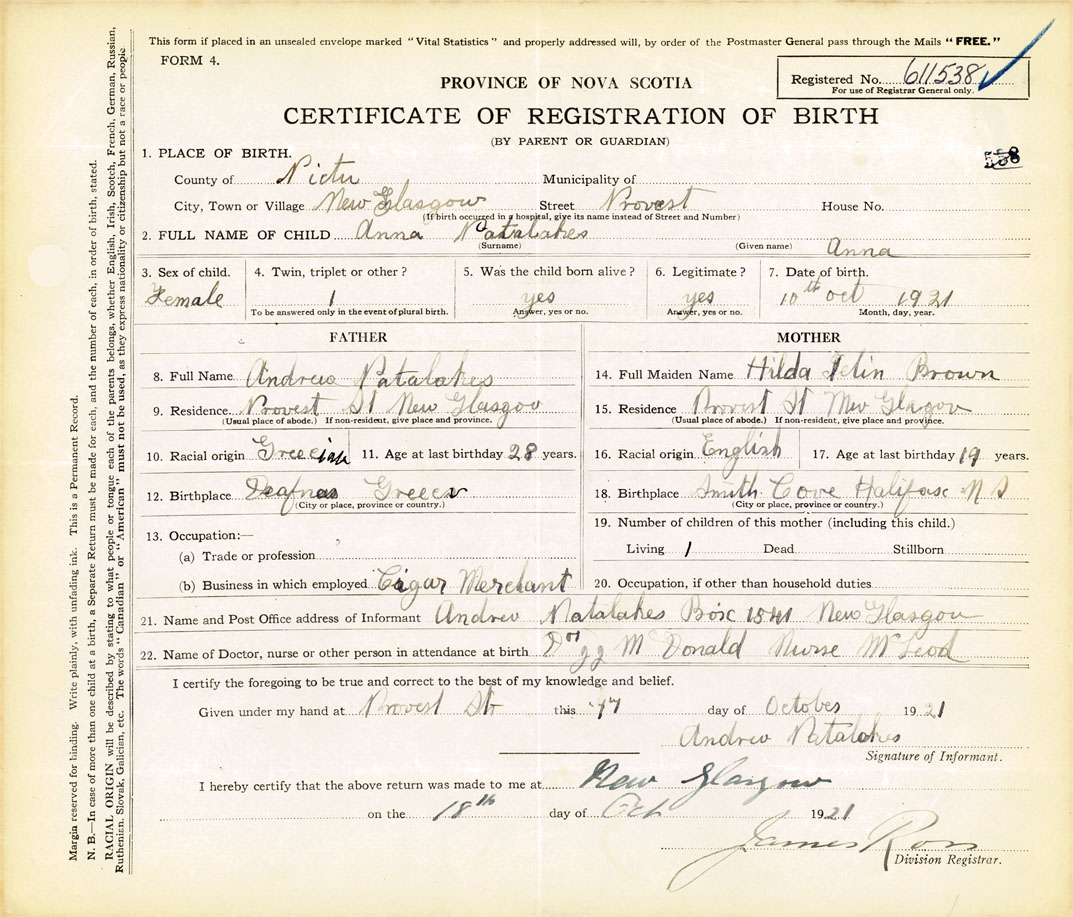 This form if placed in an unsealed envelope marked "Vital Statistics" and properly addressed will, by order of the Postmaster General pass through the Mails "FREE."
FORM 4.
Registered No. 611538
For use of Registrar General only.
PROVINCE OF NOVA SCOTIA
CERTIFICATE OF REGISTRATION OF BIRTH
(BY PARENT OR GUARDIAN)
1. PLACE OF BIRTH.
County of Pictu Municipality of
City, Town or Village New Glasgow Street Provest House No.
(If birth occurred in a hospital, give its name instead of Street and Number)
2. FULL NAME OF CHILD Anna Natalakes Anna
(Surname) (Given name)
3. Sex of child. 4. Twin, triplet or other? 5. Was the child born alive? 6. Legitimate? 7. Date of birth.
Female 1 yes yes 10th oct 1921
To be answered only in the event of plural birth. Answer, yes or no. Answer, yes or no. Month, day, year.
FATHER
8. Full Name Andrew Natalakes
9. Residence Provest St New Glasgow
(Usual place of abode.) If non-resident, give place and province.
10. Racial origin Greecian 11. Age at last birthday 28 years.
12. Birthplace Greece
(City or place, province or country.)
13. Occupation:—
(a) Trade or profession
(b) Business in which employed Cigar Merchant
MOTHER
14. Full Maiden Name Hilda Brown
15. Residence Provest St New Glasgow
(Usual place of abode.) If non-resident, give place and province.
16. Racial origin English 17. Age at last birthday 19 years.
18. Birthplace Smith Cove Halifax N S
(City or place, province or country.)
19. Number of children of this mother (including this child.)
Living 1 Dead Stillborn
20. Occupation, if other than household duties
21. Name and Post Office address of Informant Andrew Natalakes Box 1541 New Glasgow
22. Name of Doctor, nurse or other person in attendance at birth Dr McDonald Nurse McLeod
I certify the foregoing to be true and correct to the best of my knowledge and belief.
Given under my hand at Provest St this 17 day of October 1921
Andrew Natalakes
Signature of Informant.
I hereby certify that the above return was made to me at New Glasgow
on the 18th day of Oct 1921
James Ross
Division Registrar.
Margin reserved for binding. Write plainly, with unfading ink. This is a Permanent Record.
N. B.—In case of more than one child at a birth, a Separate Return must be made for each, and the number of each, in order of birth, stated.
RACIAL ORIGIN will be described by stating to what people or tongue each of the parents belongs, whether English, Irish, Scotch, French, German, Russian,
Ruthenian, Slovak, Galician, etc. The words "Canadian" or "American" must not be used, as they express nationality or citizenship but not a race or people